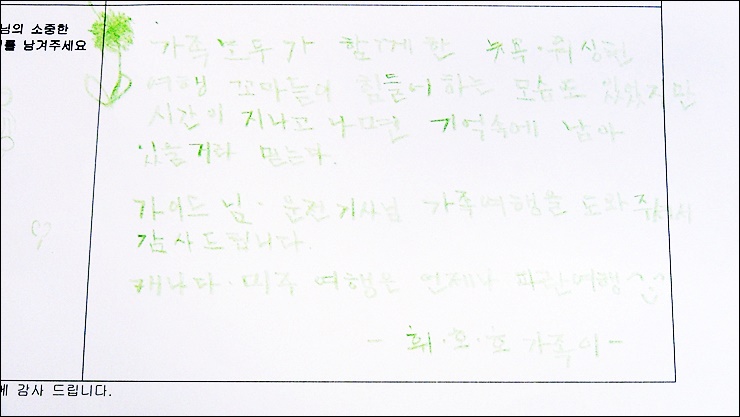 님의 소중한
를 남겨주세요
가족 모두가 함께한 뉴욕·워싱턴
여행 꼬마들이 힘들어하는 모습도 있었지만
시간이 지나고 나면 기억속에 남아
있을거라 믿는다.
가이드님· 운전기사님 가족여행을 도와주셔서
감사드립니다.
캐나다·미주 여행은 언제나 파란여행^^
가족이-
에 감사 드립니다.